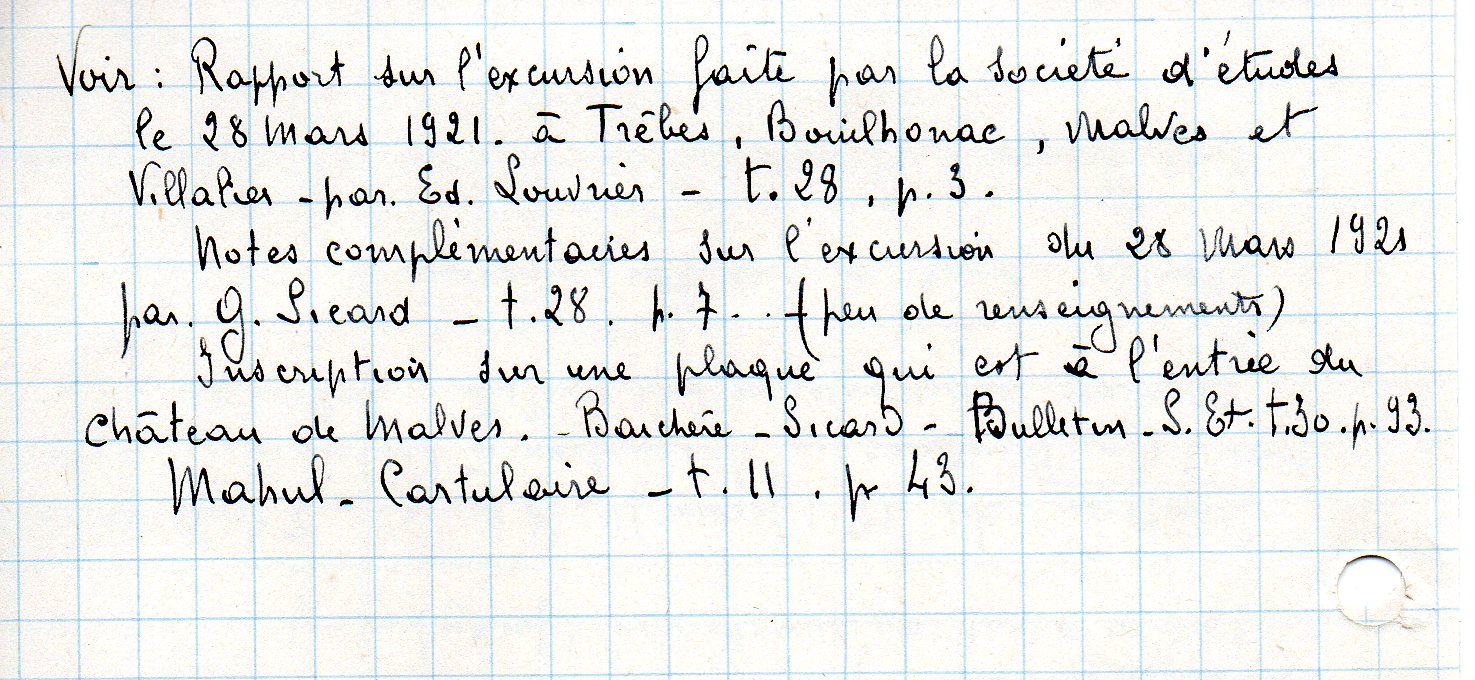 Voir : Rapport sur l'excursion faite par la Société d'études
le 28 Mars 1921. à Trèbes, Bouilhonac, Malves et
Villalier - par. Ed. Louvrier - t. 28, p. 3.
Notes complémentaires sur l'excursion du 28 Mars 1921
par. G. Sicard - t. 28. p. 7. . (peu de renseignements)
Inscription sur une plaque qui est à l'entrée du
Château de Malves. - Barchère - Sicard - Bulletin - S. Et. t. 30. p. 93.
Mahul - Cartulaire - t. 11. p 43.